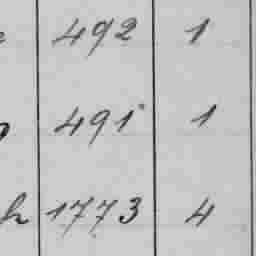 492 1
491 1
h 1773 4